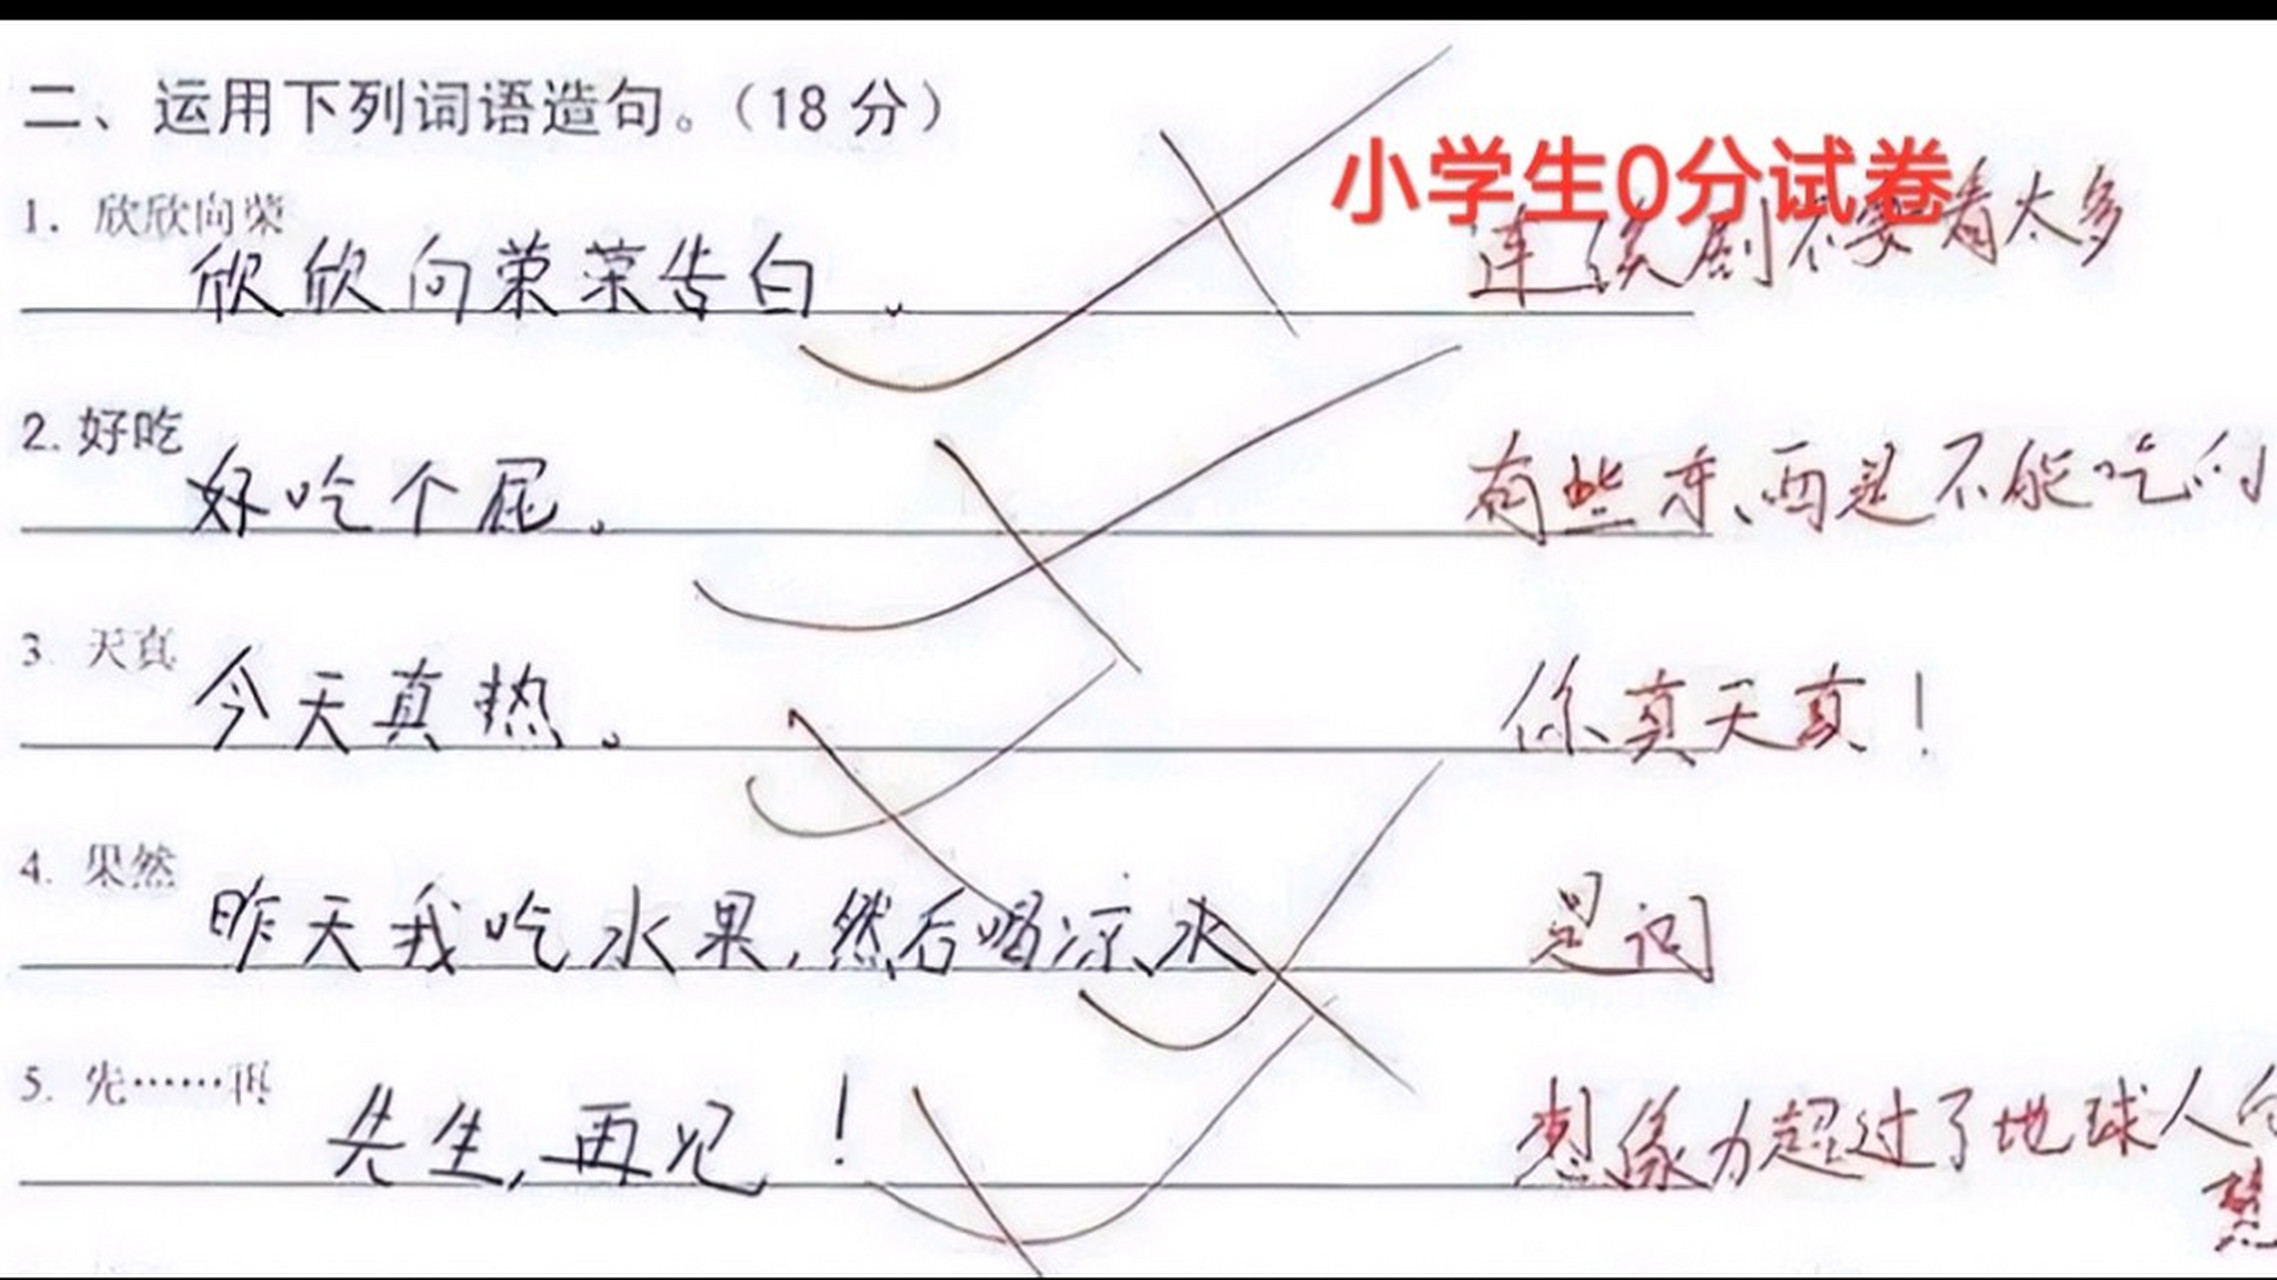 二、运用下列词语造句。（18 分）
小学生0分试卷
1. 欣欣向荣
欣欣向荣荣告白。
连续剧不要看太多
2. 好吃
好吃个屁。
有些东西是不能吃的
3. 天真
今天真热。
你真天真！
4. 果然
昨天我吃水果，然后喝凉水
是词
5. 先……再
先生，再见！
想像力超过了地球人的